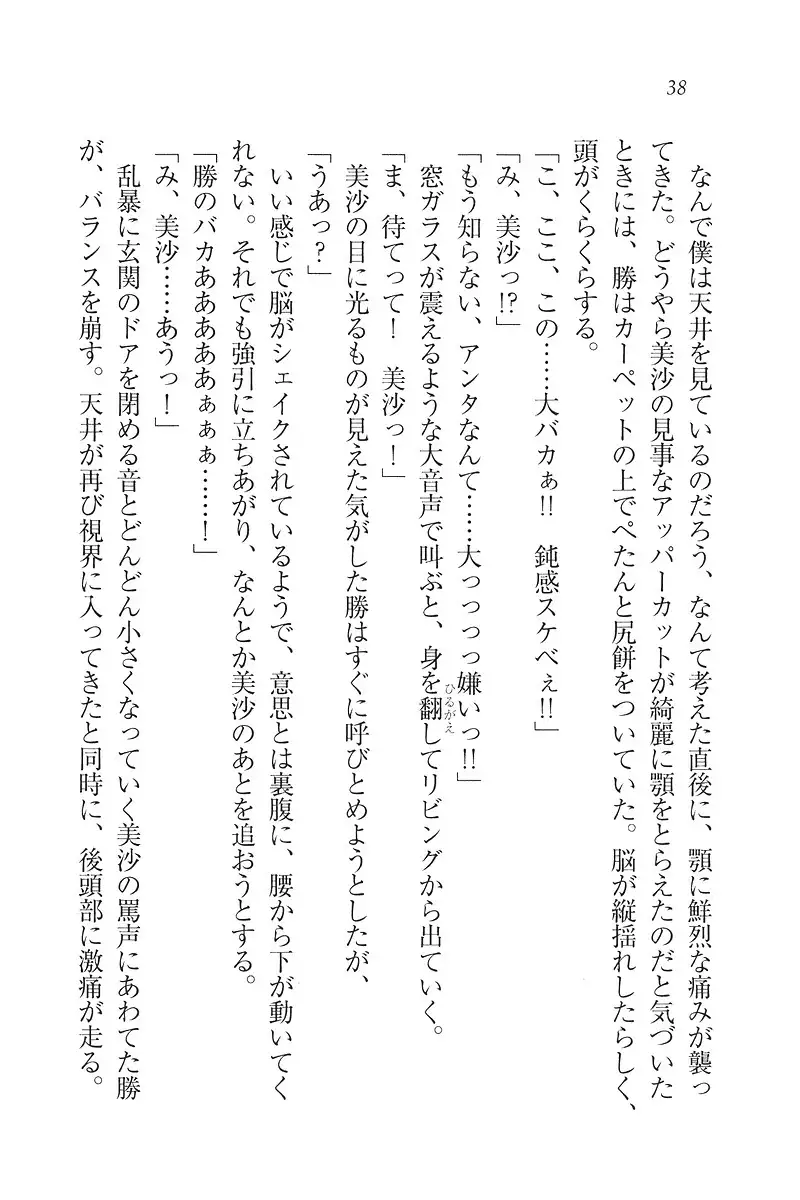 38
なんで僕は天井を見ているのだろう、なんて考えた直後に、顎に鮮烈な痛みが襲っ
てきた。どうやら美沙の見事なアッパーカットが綺麗に顎をとらえたのだと気づいた
ときには、勝はカーペットの上でぺたんと尻餅をついていた。脳が縦揺れしたらしく、
頭がくらくらする。
「こ、ここ、この……大バカぁ!!　鈍感スケベぇ!!」
「み、美沙っ!?」
「もう知らない、アンタなんて……大っっっっ嫌いっ!!」
窓ガラスが震えるような大音声で叫ぶと、身を翻してリビングから出ていく。
ひるがえ
「ま、待てって！　美沙っ！」
美沙の目に光るものが見えた気がした勝はすぐに呼びとめようとしたが、
「うあっ？」
いい感じで脳がシェイクされているようで、意思とは裏腹に、腰から下が動いてく
れない。それでも強引に立ちあがり、なんとか美沙のあとを追おうとする。
「勝のバカあああああぁぁぁ……！」
「み、美沙……あうっ！」
乱暴に玄関のドアを閉める音とどんどん小さくなっていく美沙の罵声にあわてた勝
が、バランスを崩す。天井が再び視界に入ってきたと同時に、後頭部に激痛が走る。